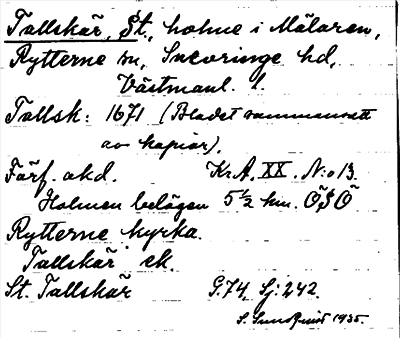 Tallskär, St., holme i Mälaren,
Rytterne sn, Snevringe hd,
Västmanl. l.
Tallsk: 1671 (Bladet sammansatt
av kopior).
Färf. akd. Kr.A. XX. N:o 13.
Holmen belägen 5½ km. ÖSÖ
Rytterne kyrka.
Tallskär ek.
St. Tallskär G.74, Sj:242.
S. Sundquist 1935.